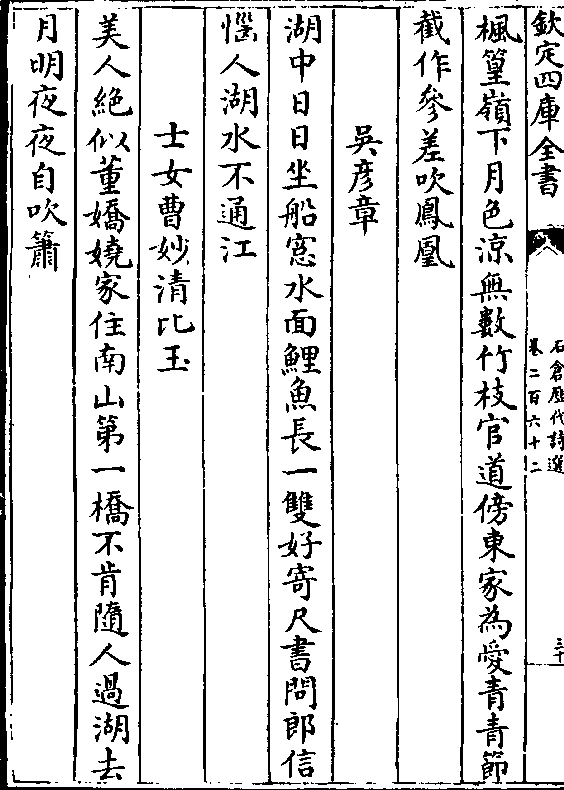 欽定四庫全書
石倉歷代詩選
卷二百六十二
三十
楓篁嶺下月色涼無數竹枝官道傍東家為愛青青節
截作參差吹鳳凰
吳彥章
湖中日日坐船窓水面鯉魚長一雙好寄尺書問郎信
惱人湖水不通江
士女曹妙清比玉
美人絕似董嬌嬈家住南山第一橋不肯隨人過湖去
月明夜夜自吹簫